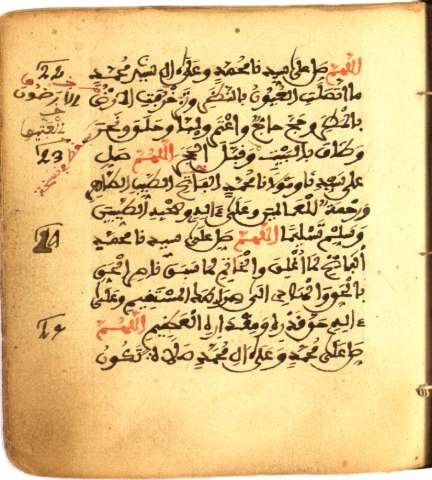 اللهم صل على سيدنا محمد وعلى ال سيدنا محمد
ما اتصلت العيون بالنظر وتزخرفت الارضون
بالمطر وحج حاج واعتمر ولبى وحلق ونحر
وطاف بالبيت وقبل الحجر اللهم صل
على سيدنا ومولانا محمد الفاتح الطيب الطاهر
ورحمة للعالمين وعلى ءاله وصحبه الطيبين
وسلم تسليما اللهم صل على سيدنا محمد
الفاتح لما اغلق والخاتم لما سبق ناصر الحق
بالحق والهادي الى صراطك المستقيم وعلى
ءاله حق قدره ومقداره العظيم اللهم
صل على محمد وعلى ال محمد صلاة تكون